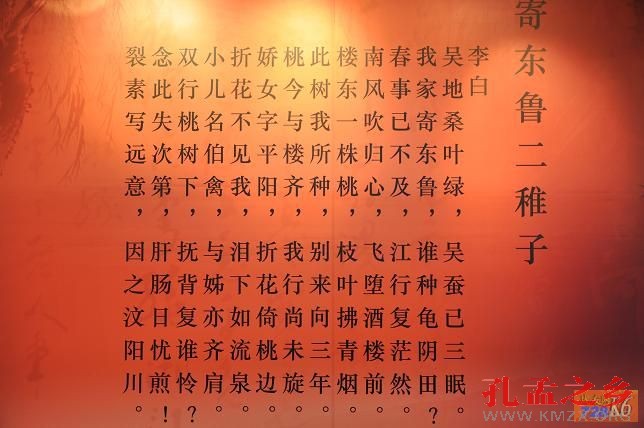 寄东鲁二稚子
李白
吴地桑叶绿，吴蚕已三眠。
我家寄东鲁，谁种龟阴田？
春事已不及，江行复茫然。
南风吹归心，飞堕酒楼前。
楼东一株桃，枝叶拂青烟。
此树我所种，别来向三年。
桃今与楼齐，我行尚未旋。
娇女字平阳，折花倚桃边。
折花不见我，泪下如流泉。
小儿名伯禽，与姊亦齐肩。
双行桃树下，抚背复谁怜？
念此失次第，肝肠日忧煎！
裂素写远意，因之汶阳川。
孔孟之乡